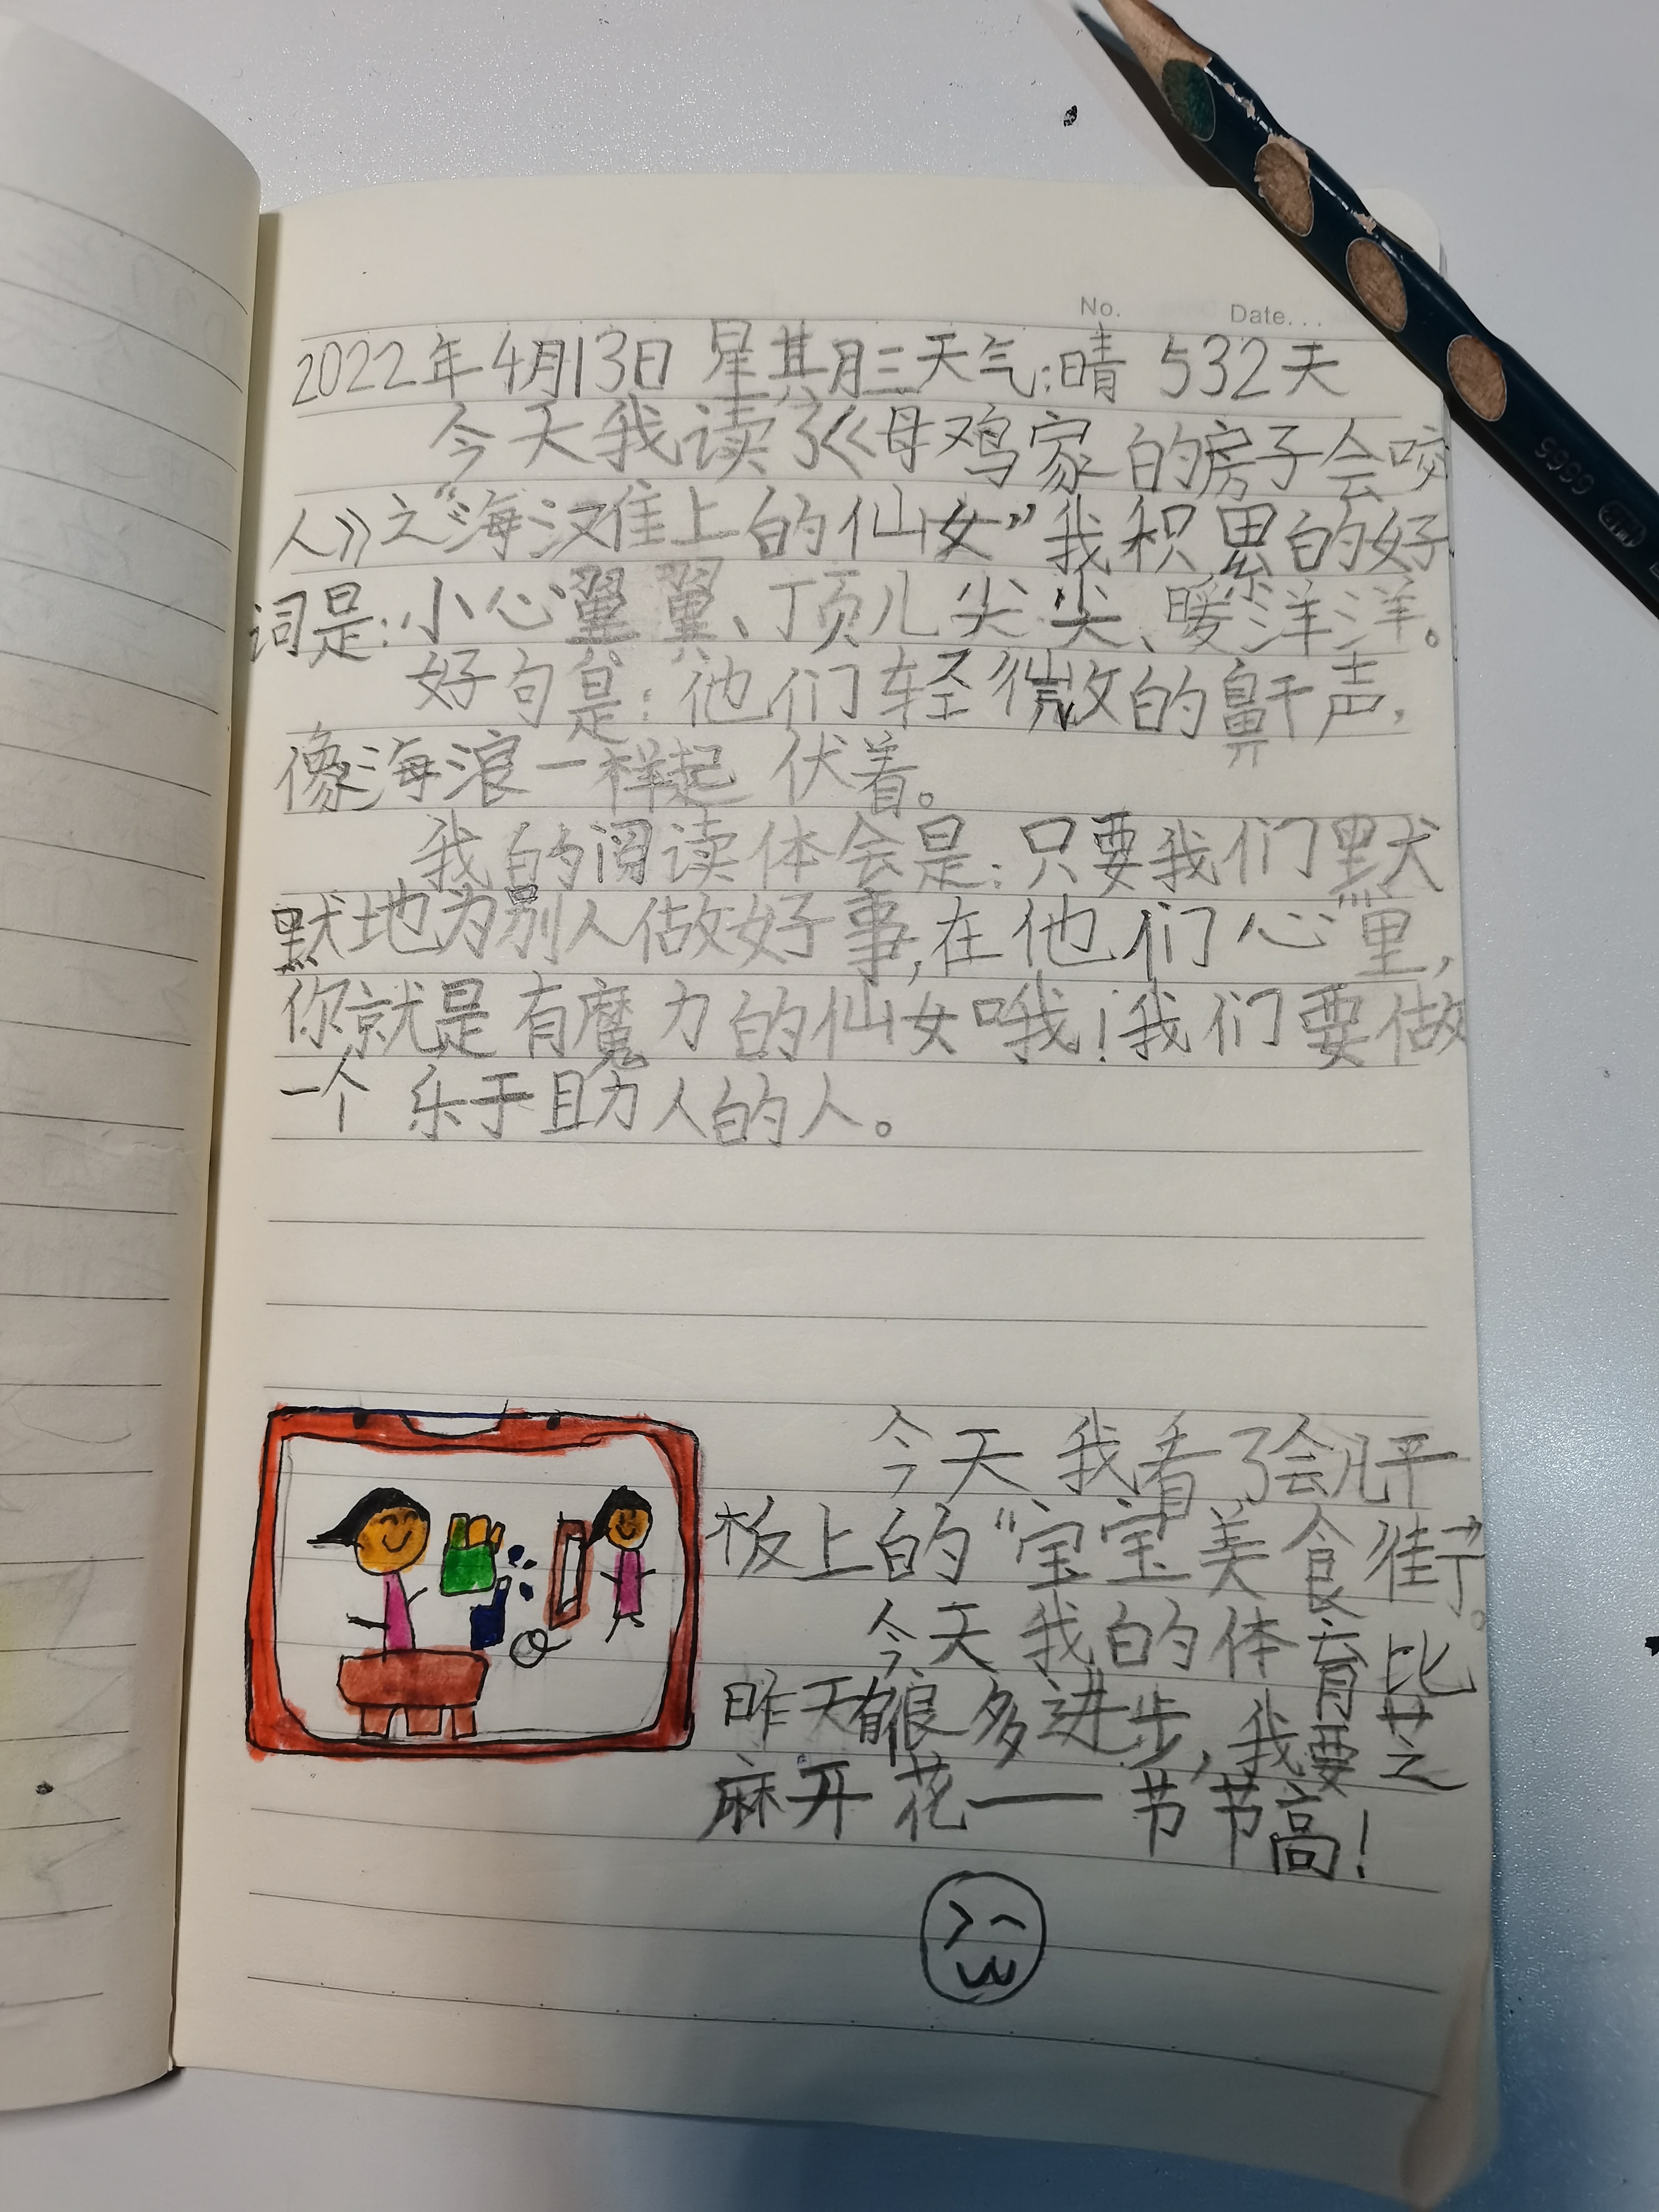 No. Date...
2022年4月13日 星期三天气:晴 532天
今天我读了《母鸡家的房子会咬
人》之“海滩上的仙女”我积累的好
词是:小心翼翼、顶儿尖尖、暖洋洋。
好句是:他们轻微的鼾声,
像海浪一样起伏着。
我的阅读体会是:只要我们默
默地为别人做好事,在他们心里,
你就是有魔力的仙女哦!我们要做
一个乐于助人的人。
今天我看了会儿平
板上的“宝宝美食街”。
今天我的体育比
昨天有很多进步,我要芝
麻开花——节节高!
6665